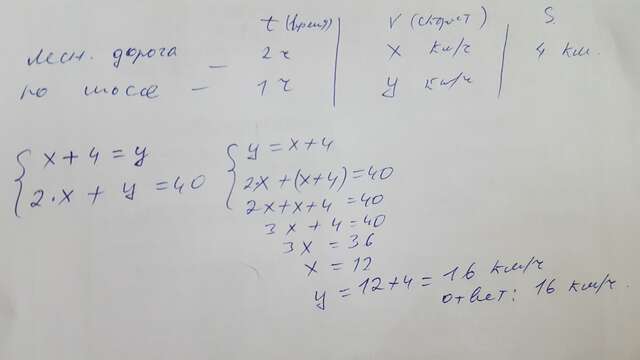 t (время) V (скорост) S
лесн. дорога — 2 ч x км/ч 4 км.
по шоссе — 1 ч y км/ч
{ x + 4 = y
2·x + y = 40
{ y = x+4
2·x + (x+4) = 40
2x+x+4 = 40
3x + 4 = 40
3x = 36
x = 12
y = 12+4 = 16 км/ч
ответ: 16 км/ч.